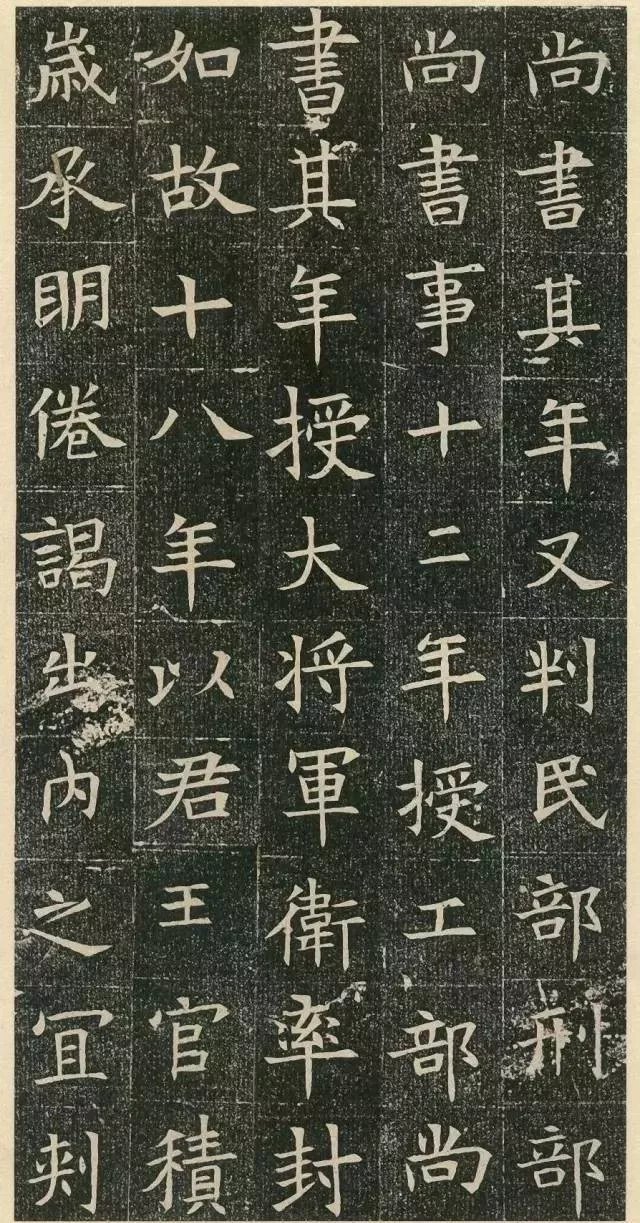 尚書其年又判民部刑部
尚書事十二年授工部尚
書其年授大将軍衛率封
如故十八年以君王官積
歳承明倦謁出内之宜刾